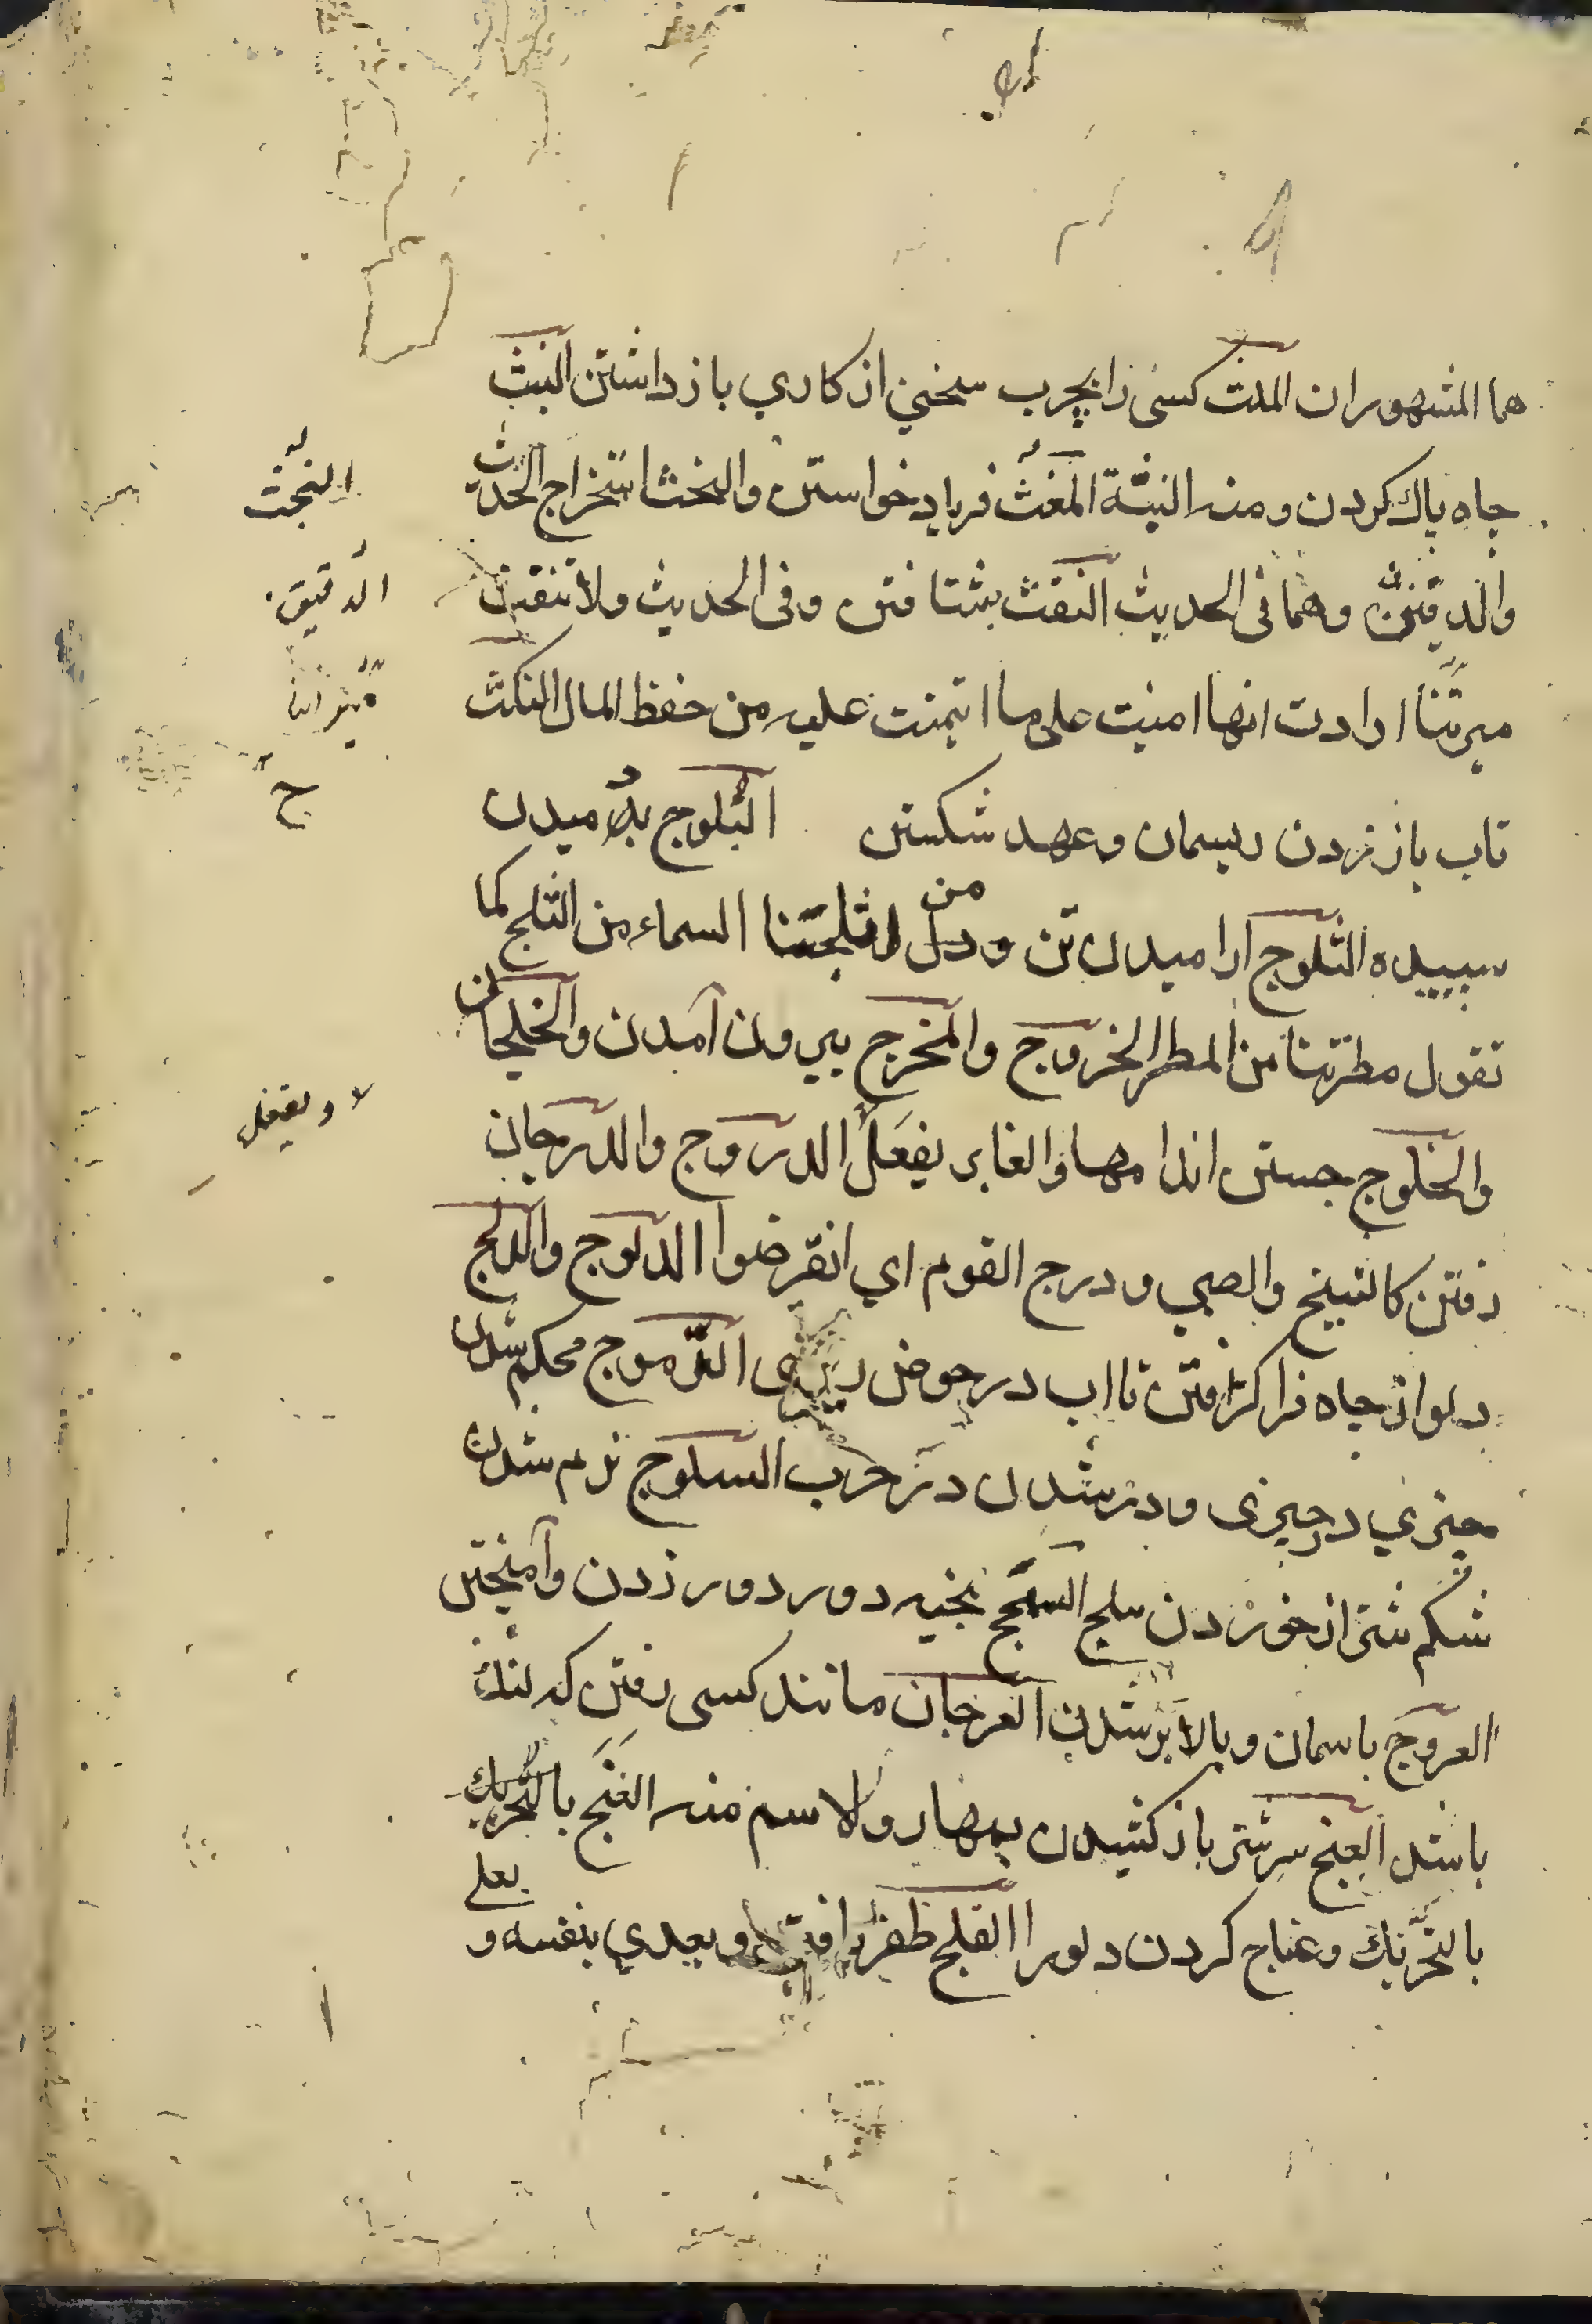 هما المشهوران الملث كسى را بچرب سخني از كاري باز داشتن النبث
چاه پاك كردن ومنه النبيثة المغث فرياد خواستن والنجث استخراج الحديث
النجث
والدفين وهما فى الحديث النقث بشتافتن وفى الحديث ولا تنقث
الدقيق
ميرتنا ارادت انها امنيت على ما ايتمنت عليه من حفظ المال النكث
ح
تاب باز زدن ريسمان وعهد شكستن البلوج بد ميدن
سپيده الثلوج اراميدن تن ودل من اثلجتنا السماء من الثلج كما
تقول مطرتنا من المطر الخروج والمخرج بيرون آمدن والخلجان
والخلوج جستن اندامها والغابر يفعل الدروج والدرجان
لا ويفعل
رفتن كالشيخ والصبي ودرج القوم اي انقرضوا الدلوج والدلج
دلو از چاه فرا گرفتن تا اب در حوض ريزى الدموج محكم شدن
چيزي در چيزى ودر شدن در حرب السلوج نرم شدن
شكم شتر از خوردن سلج الشمج بخيه دور دور زدن وآميختن
العروج باسمان وبالا بر شدن العرجان مانند كسى رفتن كه لنگ
باشد العنج سر شتر باز كشيدن بمهار والاسم منه العنج بالتحريك
بالتحريك وعناج كردن دلو را الفلج ظفر يافتن ويعدي بنفسه و
بعلى